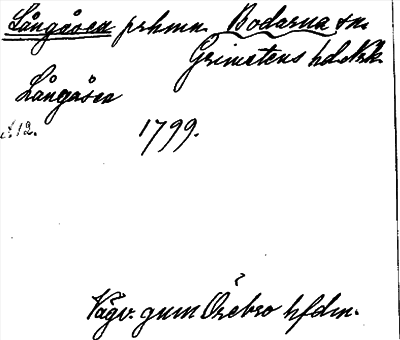 Långåsen prhmn. Bodarna sn.
Grimstens hd. Nrk.
Långåsen
S. 12. 1799.
Vägv. gnm Örebro hfdm.